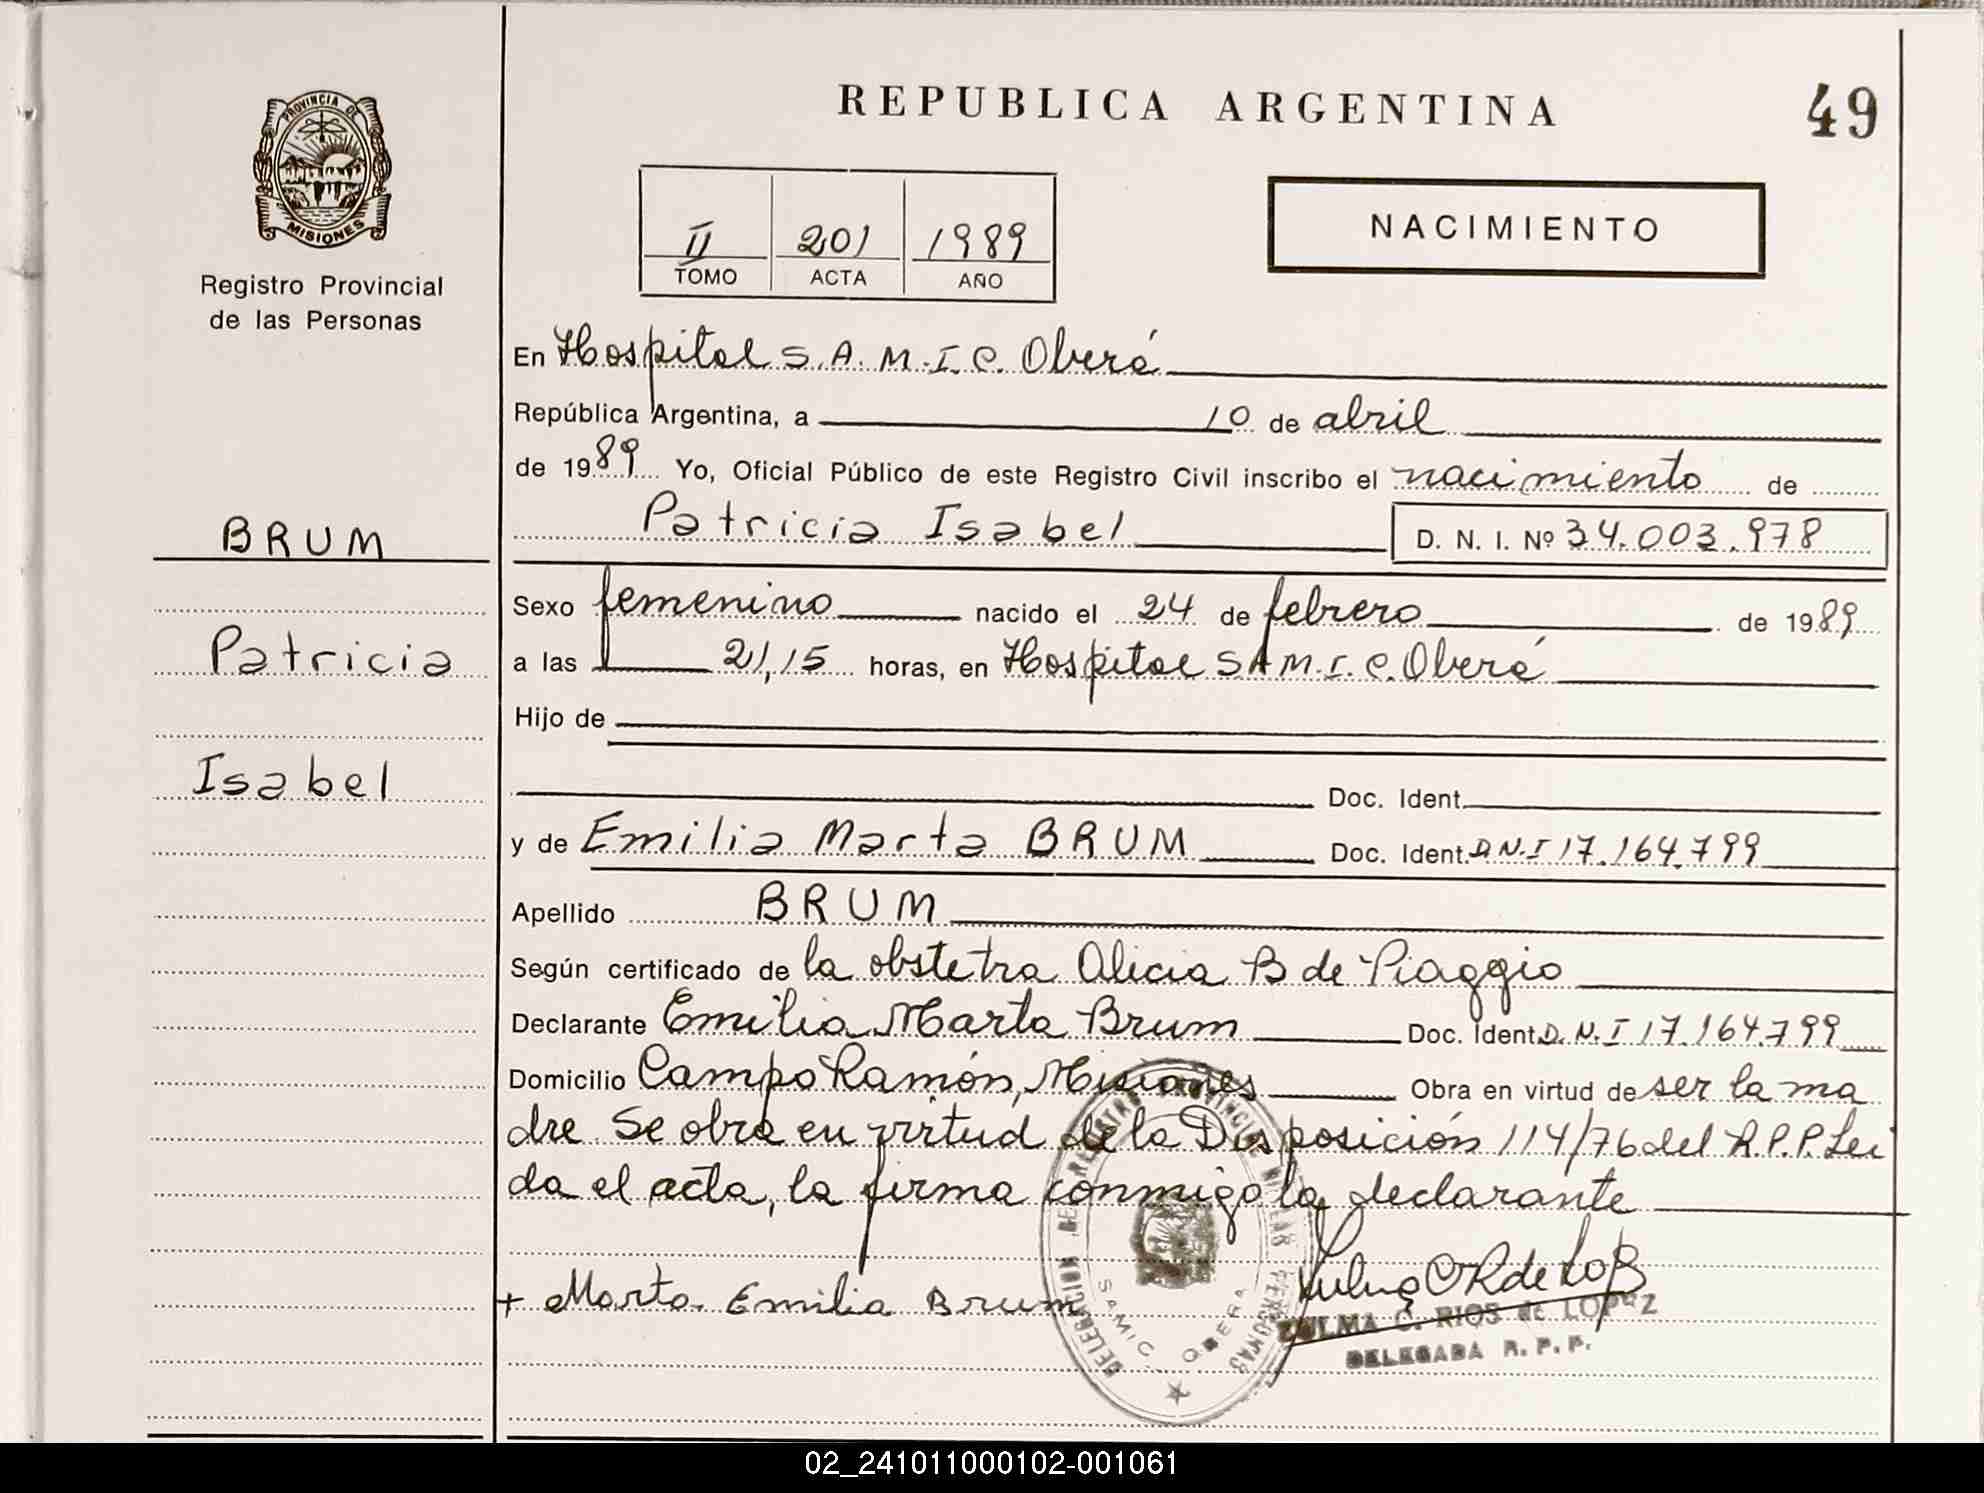 REPUBLICA ARGENTINA
49
PROVINCIA DE
MISIONES
Registro Provincial
de las Personas
II 201 1989
TOMO ACTA AÑO
NACIMIENTO
BRUM
Patricia
Isabel
En Hospital S.A.M.I.C. Oberá
República Argentina, a 10 de abril
de 1989 Yo, Oficial Público de este Registro Civil inscribo el nacimiento de
Patricia Isabel D. N. I. Nº 34.003.978
Sexo femenino nacido el 24 de febrero de 1989
a las 21,15 horas, en Hospital SAM.I.C. Oberá
Hijo de
Doc. Ident.
y de Emilia Marta BRUM Doc. Ident. D.N.I 17.164.799
Apellido BRUM
Según certificado de la obstetra Alicia B de Piaggio
Declarante Emilia Marta Brum Doc. Ident. D.N.I 17.164.799
Domicilio Campo Ramón, Misiones Obra en virtud de ser la ma
dre Se obra en virtud de la Disposición 114/76 del R.P.P. Lei
da el acta, la firma conmigo la declarante
+ Marta Emilia Brum
ZULMA C. RIOS de LOPEZ
DELEGADA R. P. P.
DELEGACION DEL REGISTRO PROVINCIAL DE LAS PERSONAS
SAMIC OBERA
02_241011000102-001061